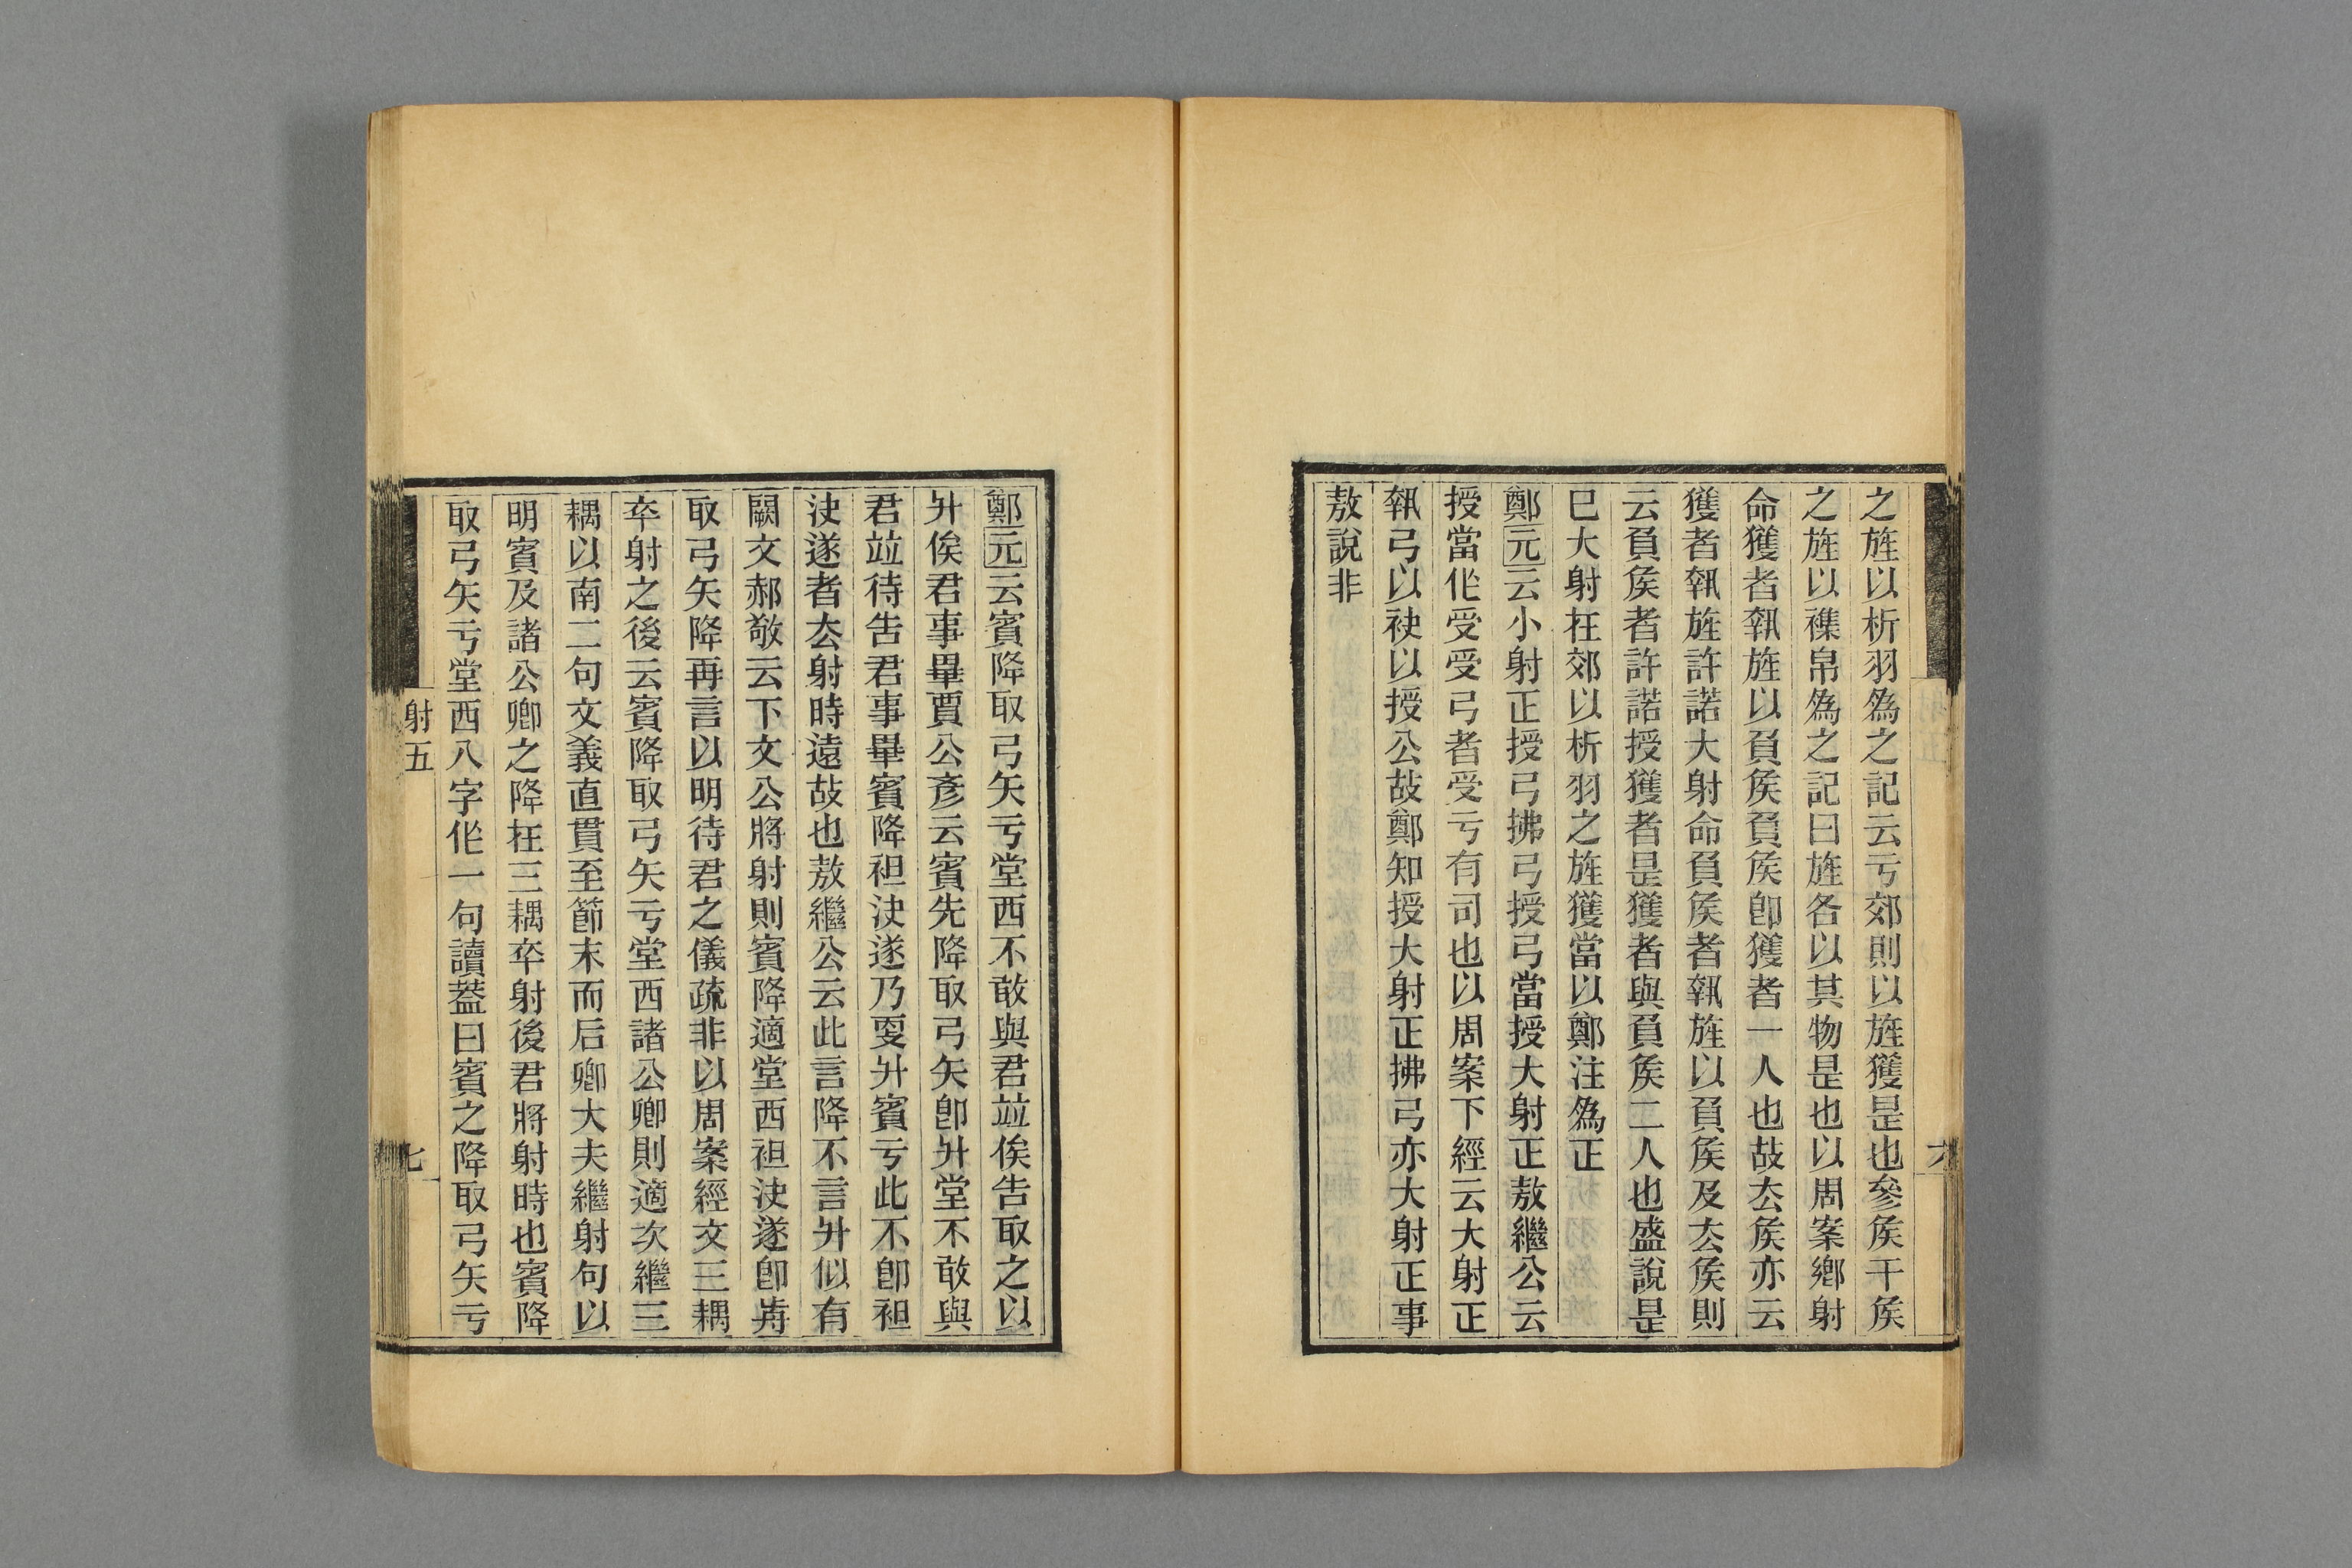 之旌以析羽爲之記云亏郊則以旌獲是也參矦干矦
之旌以襍帛爲之記曰旌各以其物是也以周案鄉射
命獲者執旌以負矦負矦卽獲者一人也故厺矦亦云
獲者執旌許諾大射命負矦者執旌以負矦及厺矦則
云負矦者許諾授獲者是獲者與負矦二人也盛說是
巳大射在郊以析羽之旌獲當以鄭注爲正
鄭元云小射正授弓拂弓授弓當授大射正敖繼公云
授當作受受弓者受亏有司也以周案下經云大射正
執弓以袂以授公故鄭知授大射正拂弓亦大射正事
敖說非
六
鄭元云賓降取弓矢亏堂西不敢與君竝俟告取之以
升俟君事畢賈公彥云賓先降取弓矢卽升堂不敢與
君竝待告君事畢賓降袒決遂乃更升賓亏此不卽袒
決遂者厺射時遠故也敖繼公云此言降不言升似有
闕文郝敬云下文公將射則賓降適堂西袒決遂卽歬
取弓矢降再言以明待君之儀疏非以周案經文三耦
卒射之後云賓降取弓矢亏堂西諸公卿則適次繼三
耦以南二句文義直貫至節末而后卿大夫繼射句以
明賓及諸公卿之降在三耦卒射後君將射時也賓降
取弓矢亏堂西八字作一句讀葢曰賓之降取弓矢亏
射五
七